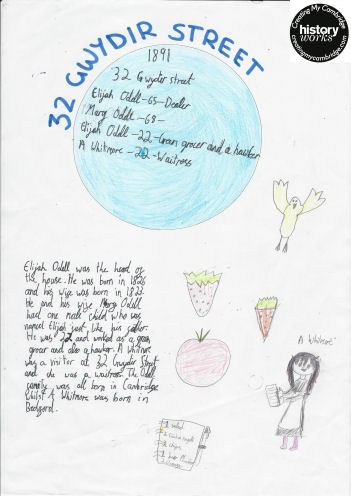 32 GWYDIR STREET
Creating My Cambridge
history
works
creatingmycambridge.com
1891
32 Gwyder street
Elijah Oddl-65-Dealer
Mary Oddl-68-
Elijah Oddll-22-Green grocer and a hawker
A Whitmore-22-Waitross
Elijah Oddll was the head of
the house. He was born in 1826
and his wife was born in 1823.
He and his wife Mary Oddll
had one male child who was
named Elijah just like his father.
He was 22 and worked as a green
grocer and also a hawker. A Whitmore
was a visitor at 32 Gwyder Street
and she was a waitross. The Oddll
family was all born in Cambridge
Whilst A Whitmore was born in
Bedford.
A Whitmore
salad
chips